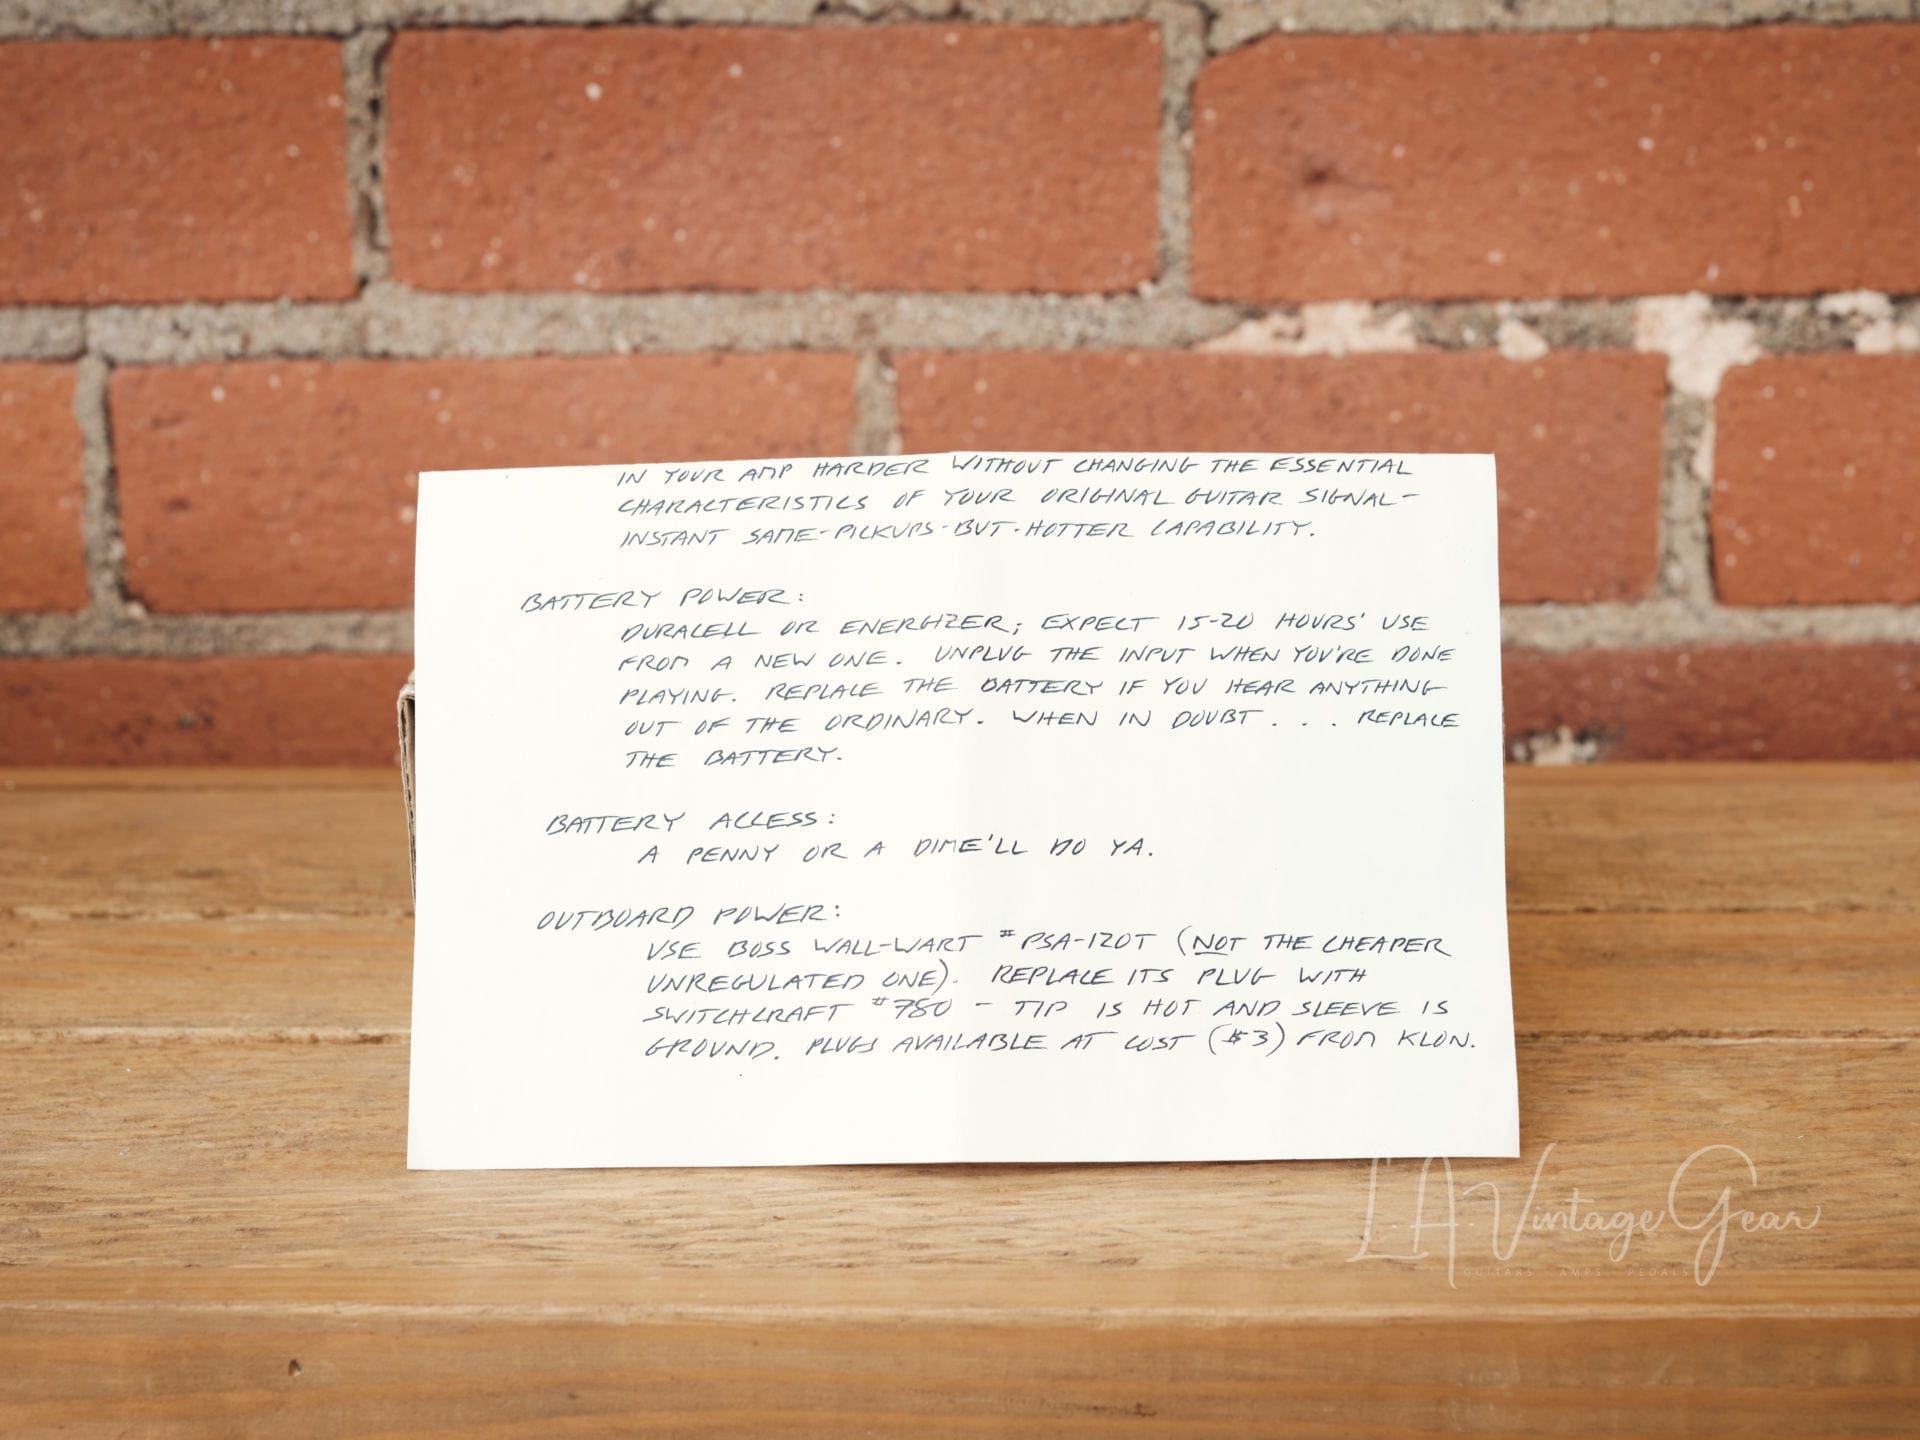 IN YOUR AMP HARDER WITHOUT CHANGING THE ESSENTIAL
CHARACTERISTICS OF YOUR ORIGINAL GUITAR SIGNAL-
INSTANT SAME-PICKUPS-BUT-HOTTER CAPABILITY.
BATTERY POWER:
DURACELL OR ENERGIZER; EXPECT 15-20 HOURS' USE
FROM A NEW ONE. UNPLUG THE INPUT WHEN YOU'RE DONE
PLAYING. REPLACE THE BATTERY IF YOU HEAR ANYTHING
OUT OF THE ORDINARY. WHEN IN DOUBT . . . REPLACE
THE BATTERY.
BATTERY ACCESS:
A PENNY OR A DIME'LL DO YA.
OUTBOARD POWER:
USE BOSS WALL-WART #PSA-120T (NOT THE CHEAPER
UNREGULATED ONE). REPLACE ITS PLUG WITH
SWITCHCRAFT #780 - TIP IS HOT AND SLEEVE IS
GROUND. PLUGS AVAILABLE AT COST ($3) FROM KLON.
L.A. Vintage Gear
GUITARS · AMPS · PEDALS